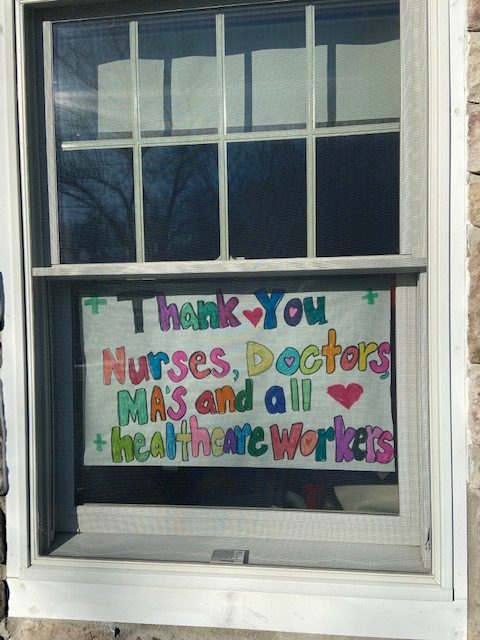 Thank You
Nurses, Doctors,
MA's and all
healthcare Workers